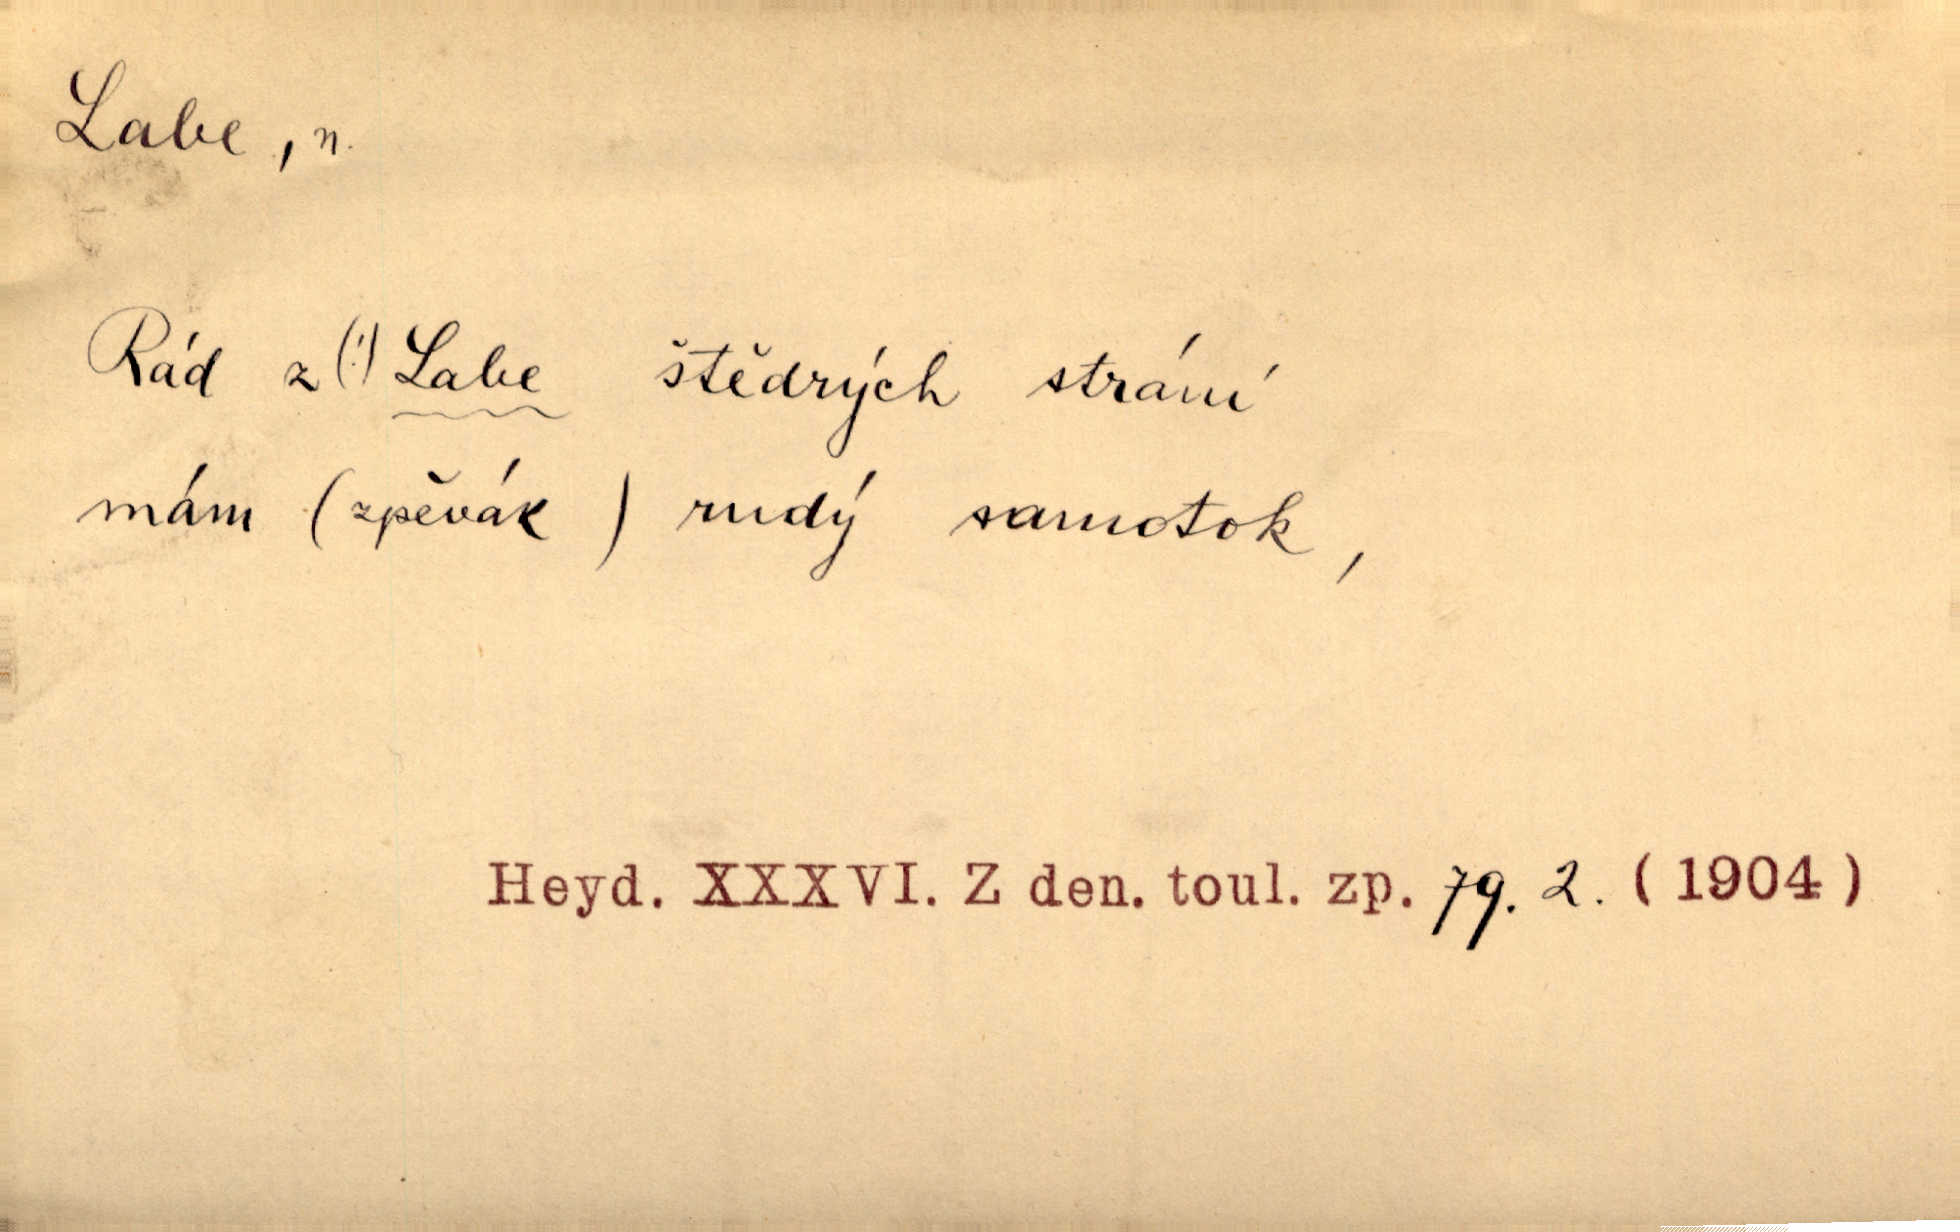 Labe, n.
Rád z (!) Labe štědrých strání
mám (zpěvák) rudý samotok,
Heyd. XXXVI. Z den. toul. zp. 79. 2. (1904)